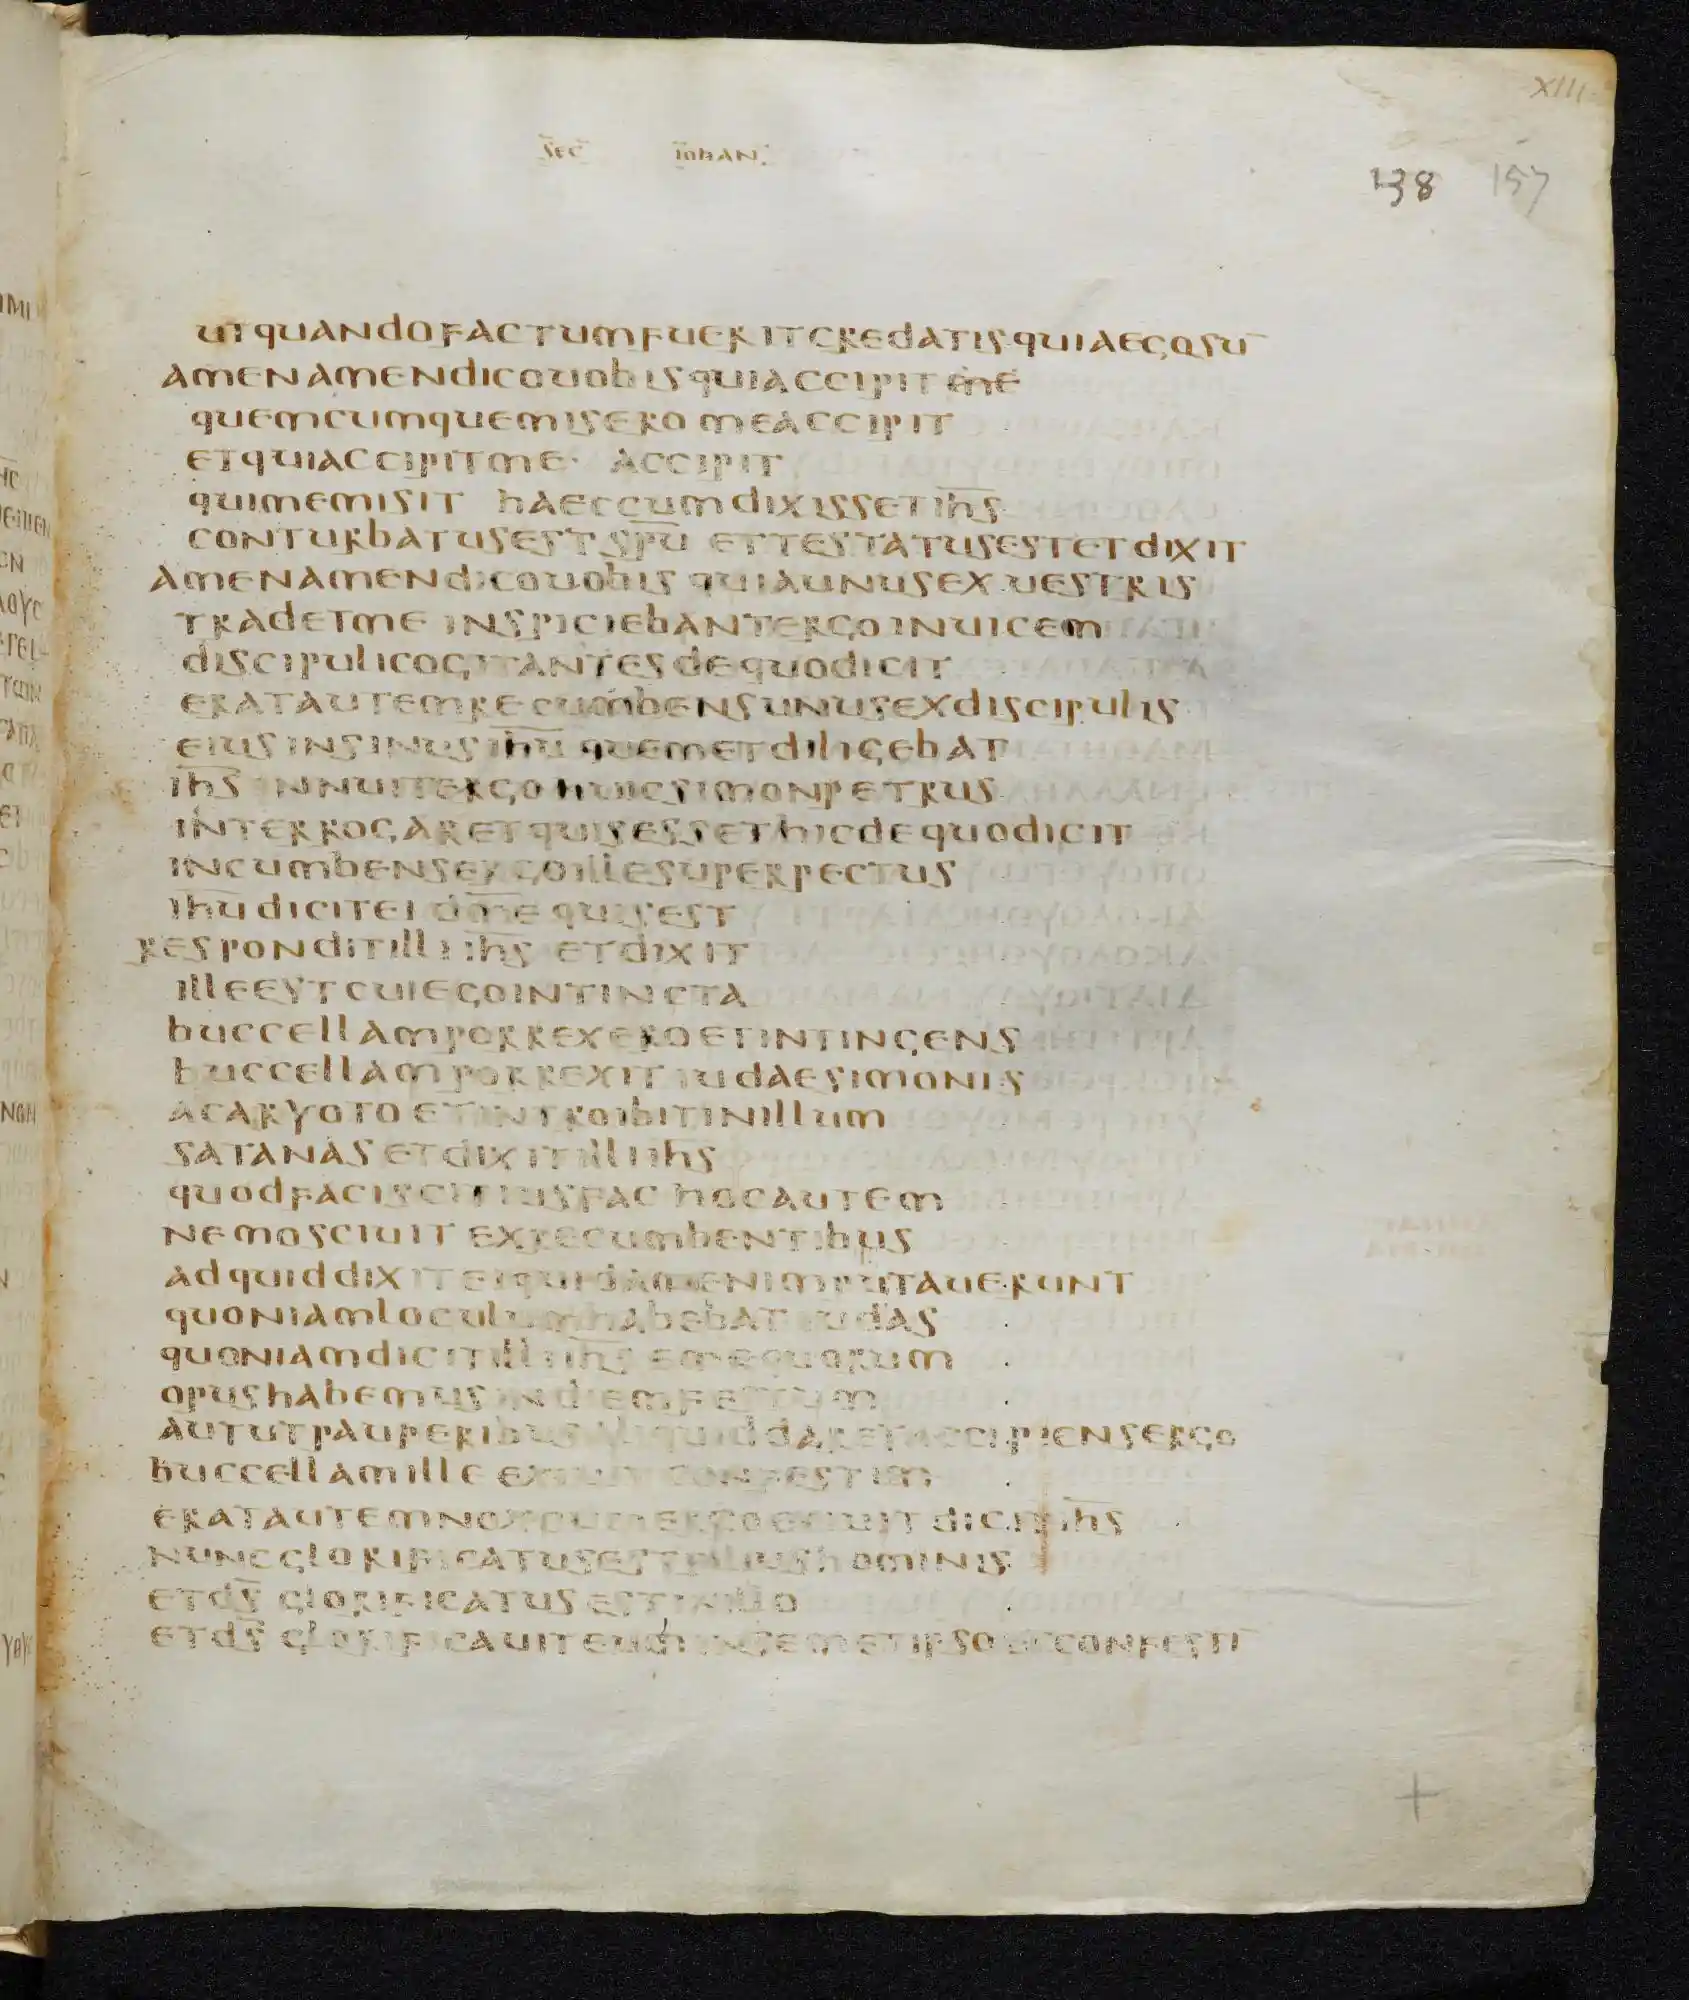 XIII
sec iohan
138 157
utquandofactumfueritcredatisquiaegosū
amenamendicouobisquiaccipit me
quemcumquemisero meaccipit
etquiaccipitme· accipit
quimemisit haeccumdixissetih̅s̅
conturbatusest sp̅u̅ ettestatusestetdixit
amenamendicouobis quiaunusex uestris
tradetme inspiciebantergoinuicem
discipulicogitantesdequodicit
eratautemrecumbensunusexdiscipulis
eiusinsinusih̅u̅ quemetdiligebat
ih̅s̅ innuitergohuicsimonpetrus
interrogaretquisessethicdequodicit
incumbensergoillesuperpectus
ih̅u̅dicitei dm̅e̅ quisest
responditilli ih̅s̅ etdixit
illeestcuiegointincta
buccellamporrexeroetintingens
buccellamporrexit iudaesimonis
acaryoto etintroibitinillum
satanas etdixitilliih̅s̅
quodfaciscitiusfac hocautem
nemosciuit exrecumbentibus
adquiddixitei quidamenimputauerunt
quoniamloculumhabebatiudas
quoniamdicitilliih̅s̅ emequorum
opushabemusindiemfestum
aututpauperibusaliquiddaretaccipiensergo
buccellamille exiuit confestim
eratautemnoxcumergoexiuit dicitih̅s̅
nuncglorificatusestfiliushominis
etds̅ glorificatusestinillo
etds̅ glorificauiteum insemetipso etconfestī